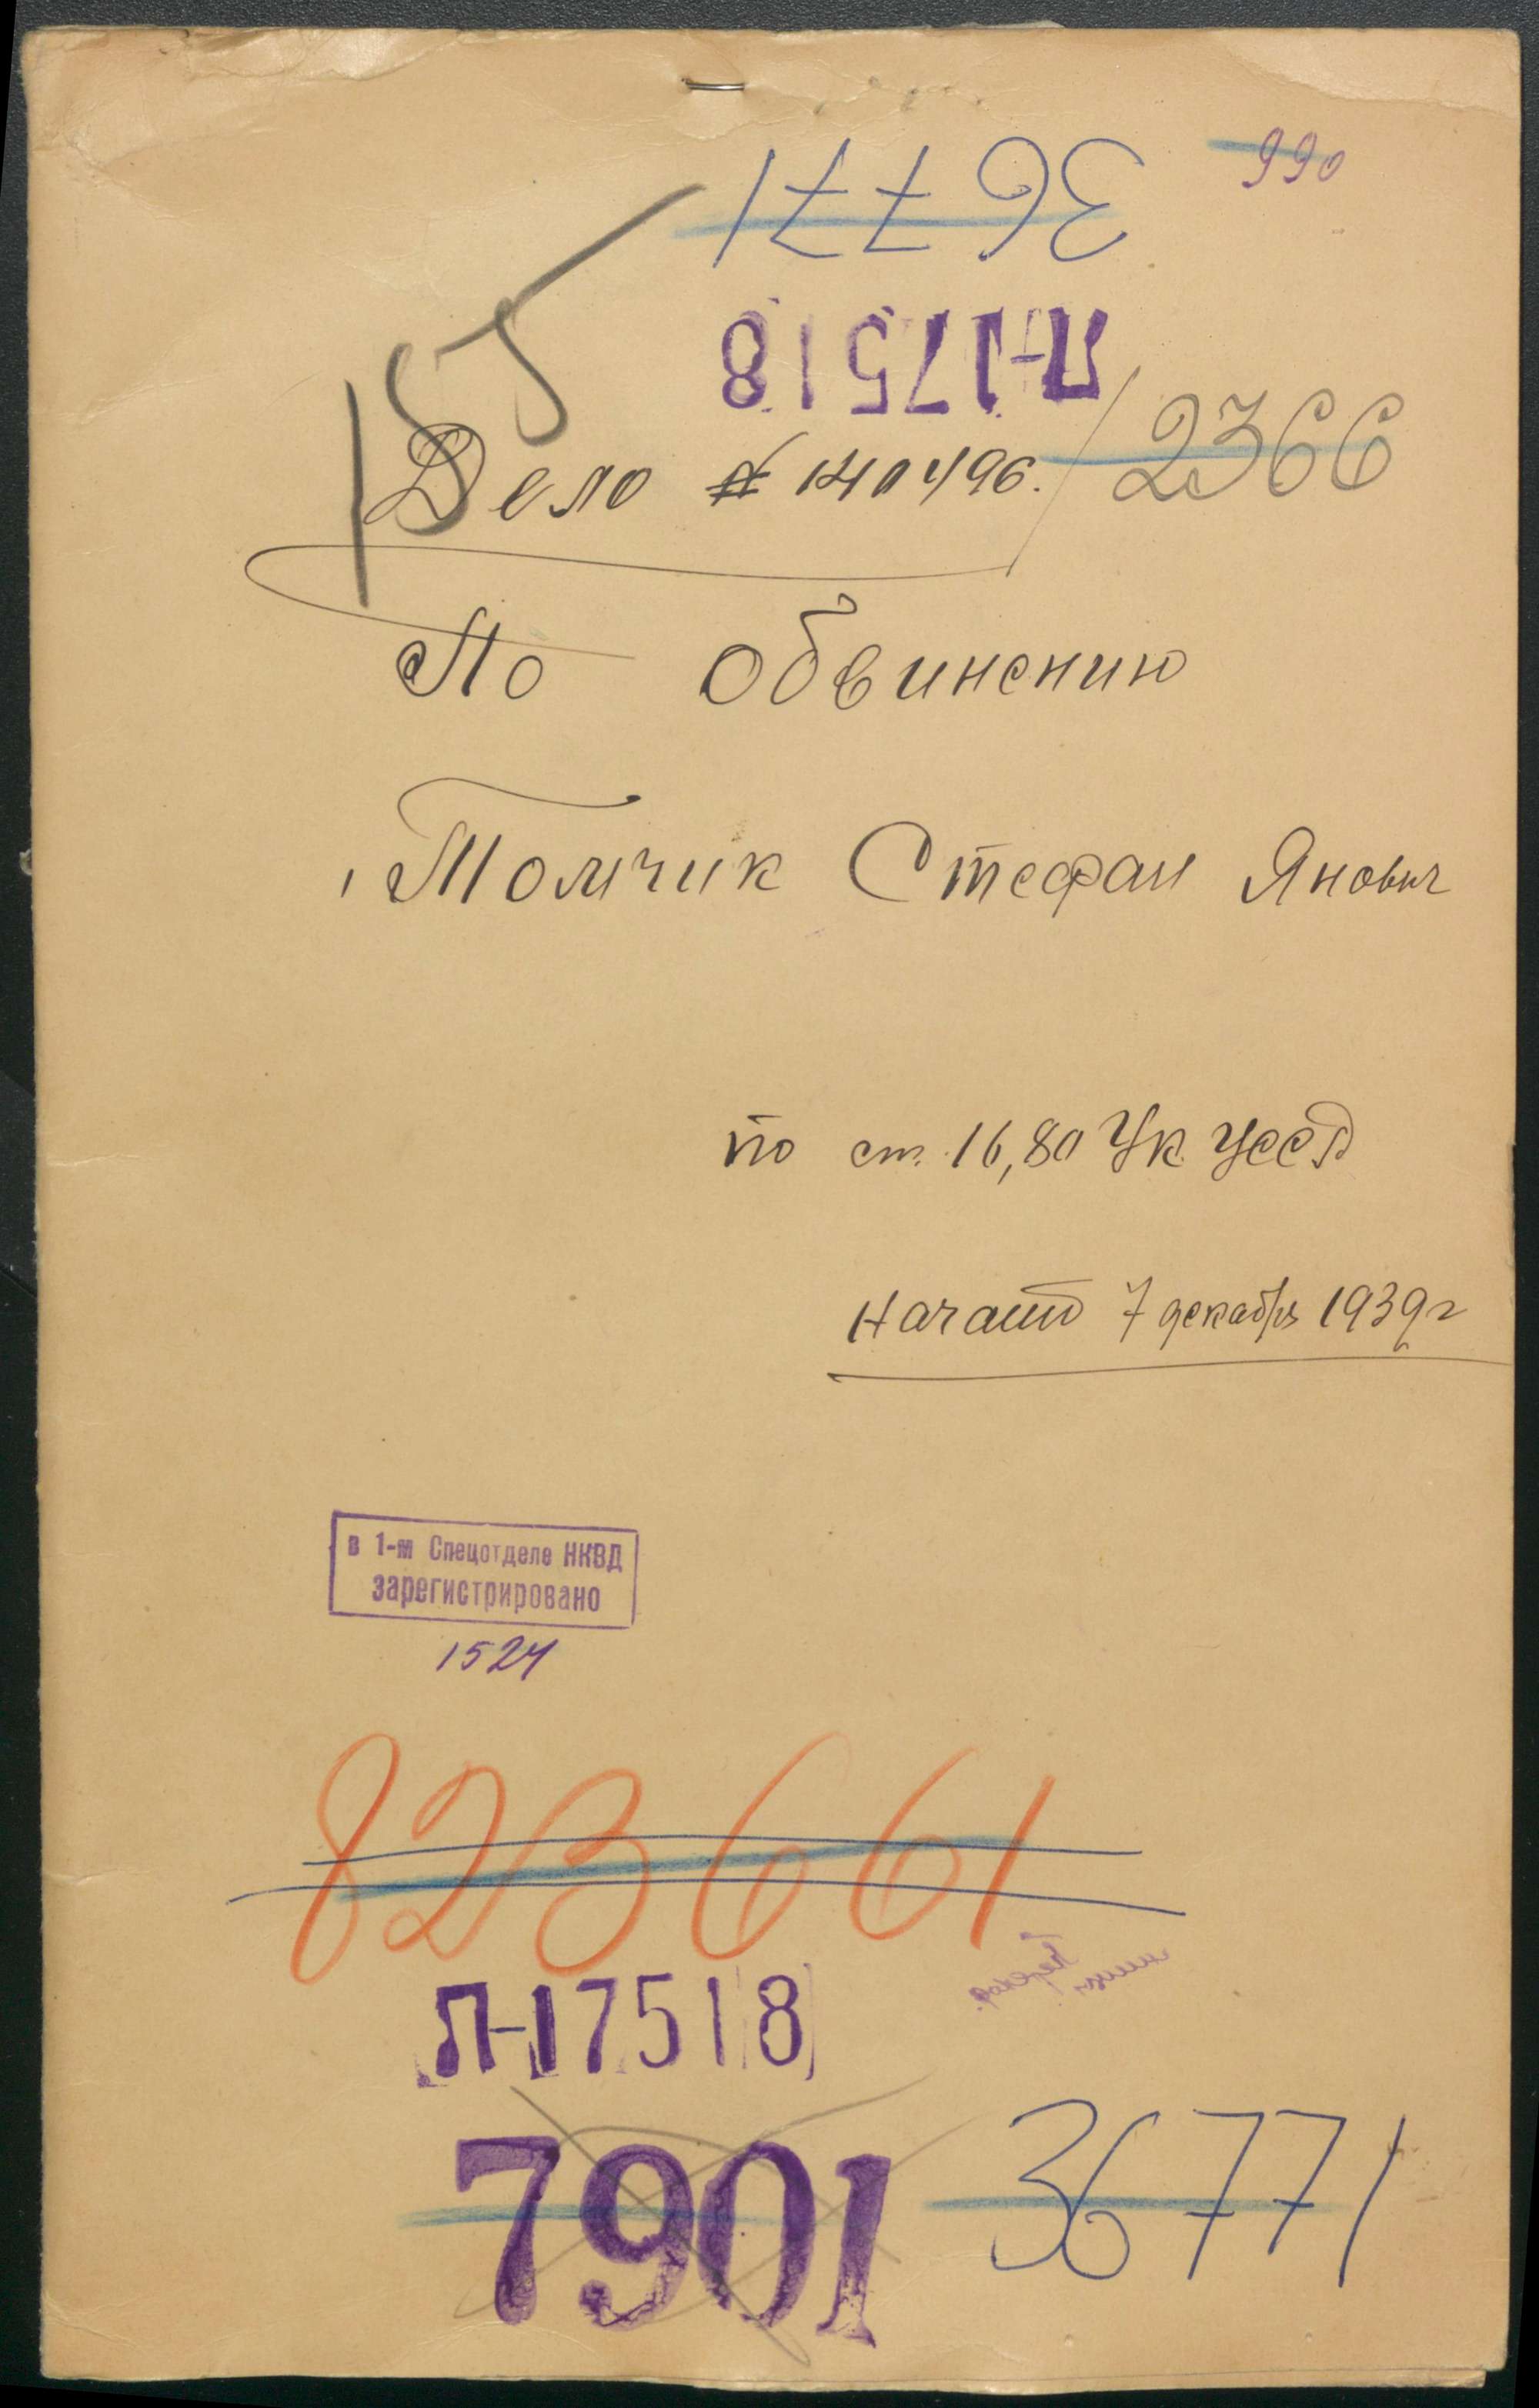 990
36771
П-17518
15
Дело № 140496. / 2366
По обвинению
Томчик Стефан Янович
по ст. 16,80 УК УССР
Начато 7 декабря 1939 г
в 1-м Спецотделе НКВД
зарегистрировано
1524
823661
П-17518
7901 36771